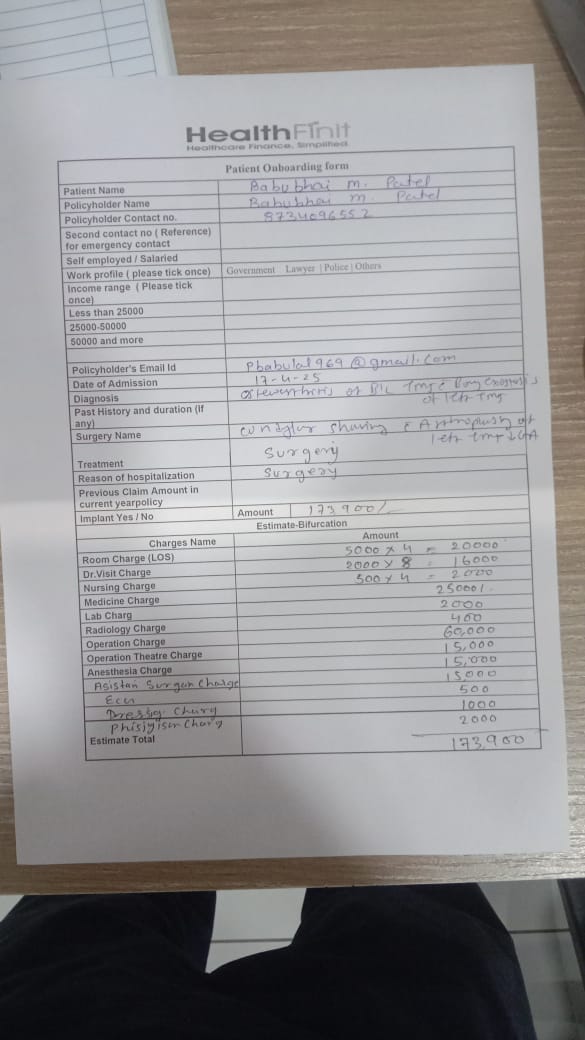 HealthFinit
Healthcare Finance, Simplified
Patient Onboarding form
Patient Name Babubhai m. Patel
Policyholder Name Babubhai m. Patel
Policyholder Contact no. 8734096552
Second contact no ( Reference)
for emergency contact
Self employed / Salaried
Work profile ( please tick once) Government Lawyer | Police | Others
Income range ( Please tick
once)
Less than 25000
25000-50000
50000 and more
Policyholder's Email Id Pbabulal969@gmail.com
Date of Admission 17-4-25
Diagnosis of B/L Bony
of left
Past History and duration (If
any)
Surgery Name shaving
left
Treatment Surgery
Reason of hospitalization Surgery
Previous Claim Amount in
current yearpolicy
Implant Yes / No Amount 173,900/-
Estimate-Bifurcation
Charges Name Amount
Room Charge (LOS) 5000 x 4 = 20000
Dr.Visit Charge 2000 x 8 = 16000
Nursing Charge 500 x 4 = 2000
Medicine Charge 25000/-
Lab Charg 2000
Radiology Charge 400
Operation Charge 60,000
Operation Theatre Charge 15,000
Anesthesia Charge 15,000
Asistan Surgan Charge 15000
500
Charg 1000
Charg 2000
Estimate Total 173,900